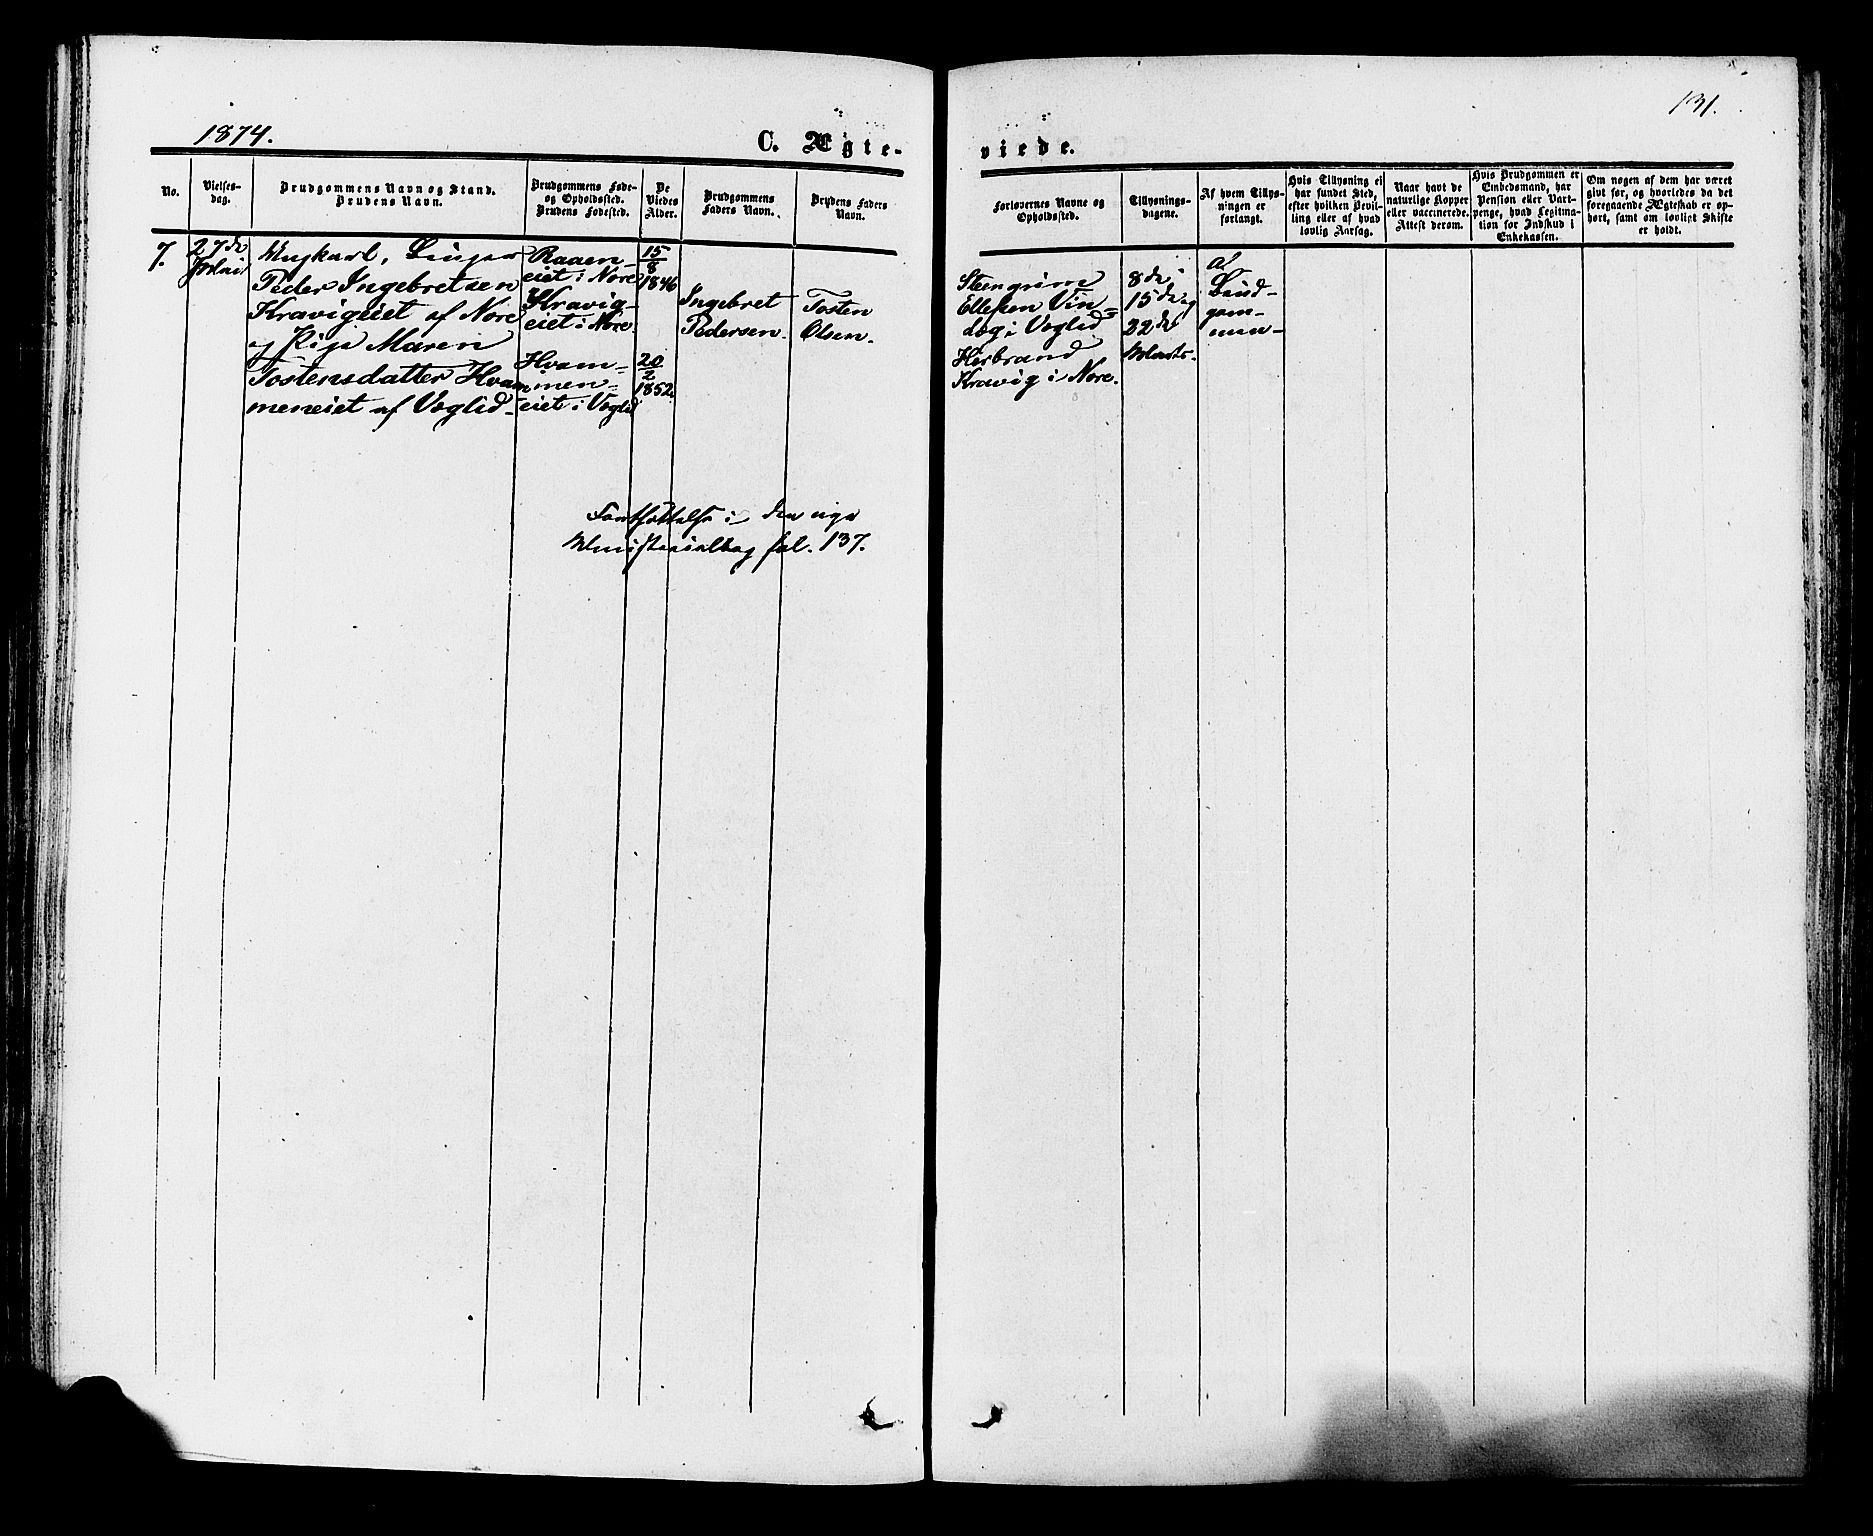 1874.
131.
C. Ægte-
viede.
No.
Vielses-
dag.
Brudgommens Navn og Stand.
Brudens Navn.
Brudgommens Føde-
og Opholdssted.
Brudens Fødested.
De
Viedes
Alder.
Brudgommens
Faders Navn.
Brudens Faders
Navn.
Forlovernes Navne og
Opholdssted.
Tillysnings-
dagene.
Af hvem Tillys-
ningen er
forlangt.
Hvis Tillysning ei
har fundet Sted,
efter hvilken Bevil-
ling eller af hvad
lovlig Aarsag.
Naar havt de
naturlige Kopper
eller vaccinerede.
Attest derom.
Hvis Brudgommen er
Embedsmand, har
Pension eller Vart-
penge, hvad Legitima-
tion for Indskud i
Enkekassen.
Om nogen af dem har været
givt før, og hvorledes da det
foregaaende Ægteskab er op-
hørt, samt om lovligt Skifte
er holdt.
7.
27de
Mai
Ungkarl,
Peder Ingebretsen
Kravigeiet af Nore
og Pige Maren
Tostensdatter Hvam
meneiet af Veglid
Raaen-
eiet i Nore
Kravig-
eiet i Nore
Hvam-
men-
eiet i Veglid
15/8
1846
20/2
1852
Ingebret
Pedersen.
Tosten
Olsen.
Steengrim
Ellefsen Vin-
deg i Veglid
Herbrand
Kravig i Nore.
8de,
15de og
22de
Marts.
af
Brud-
gom-
men-
Fortsættelse i den nye
Ministerialbog fol. 137.